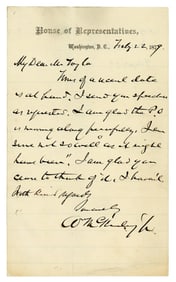 House of Representatives,
Washington, D. C., Feby 26, 1879
My Dear Mr Taylor
Yours of a recent date
is at hand. I send you speeches
as requested. I am glad the P.O.
is moving along peacefully. I am
sure not so well as "it might
have been". I am glad you
came to think of it.
With kind regards
Sincerely
W McKinley Jr